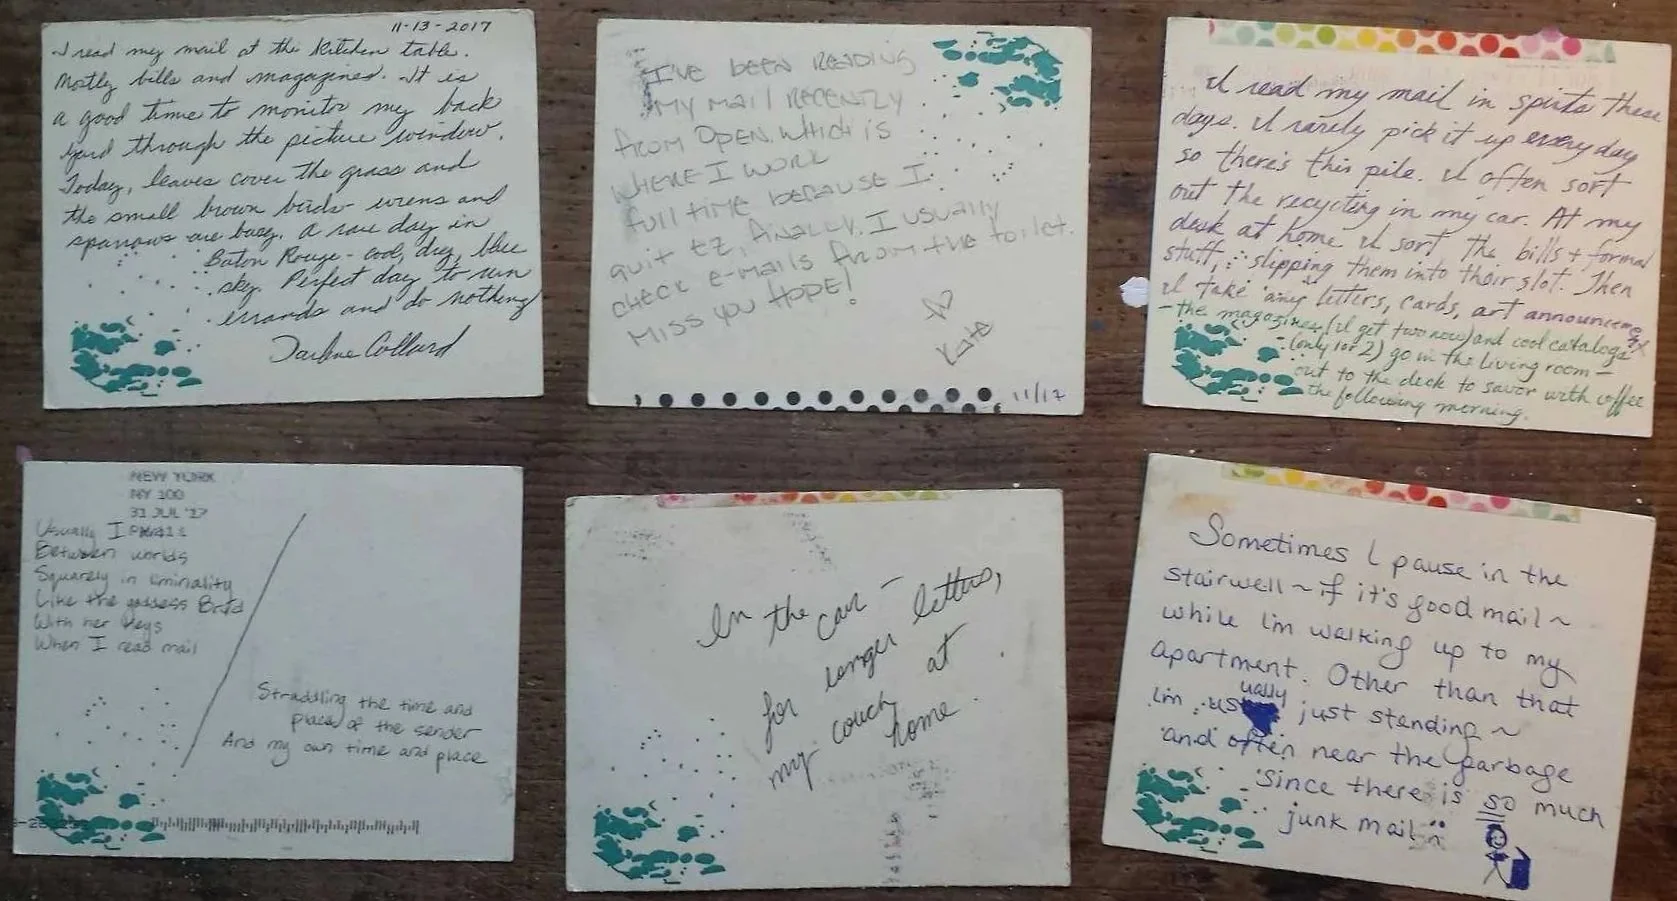 11-13-2017
I read my mail at the kitchen table.
Mostly bills and magazines. It is
a good time to monitor my back
yard through the picture window.
Today, leaves cover the grass and
the small brown birds - wrens and
sparrows are busy. A rare day in
Baton Rouge - cool, dry, blue
sky. Perfect day to run
errands and do nothing
Darlene Collard
I'VE BEEN READING
MY MAIL RECENTLY
FROM OPEN. WHICH IS
WHERE I WORK
full time BECAUSE I
quit EZ, FINALLY. I usually
CHECK e-mails from the toilet.
Miss you HOPE!
Kate
11/17
I read my mail in spirts these
days. I rarely pick it up every day
so there's this pile. I often sort
out the recycling in my car. At my
desk at home I sort the bills + formal
stuff, slipping them into their slot. Then
I take any letters, cards, art
- the magazines (I get two now) and cool catalogs
(only 1 or 2) go in the living room -
out to the deck to savor with coffee
the following morning.
NEW YORK
NY 100
31 JUL '17
Usually I
Between worlds
Squarely in liminality
Like the goddess
With her keys
When I read mail
Straddling the time and
place of the sender
And my own time and place
In the car -
for longer letters,
my couch at
home.
Sometimes I pause in the
stairwell ~ if it's good mail ~
while I'm walking up to my
apartment. Other than that
I'm usually just standing ~
and often near the garbage
since there is so much
junk mail